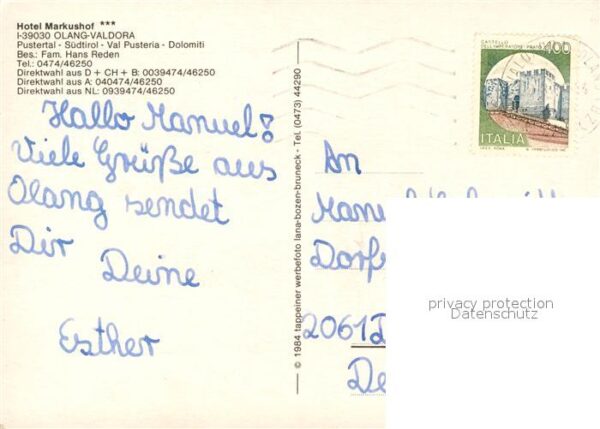 Hotel Markushof ***
I-39030 OLANG-VALDORA
Pustertal - Südtirol - Val Pusteria - Dolomiti
Bes.: Fam. Hans Reden
Tel.: 0474/46250
Direktwahl aus D + CH + B: 0039474/46250
Direktwahl aus A: 040474/46250
Direktwahl aus NL: 0939474/46250
Hallo Manuel!
Viele Grüße aus
Olang sendet
Dir Deine
Esther
© 1984 tappeiner werbefoto lana-bozen-bruneck - Tel. (0473) 44290
CASTELLO
DELL'IMPERATORE PRATO
400
ITALIA
An
Manuel
Dorf
2061
De
privacy protection
Datenschutz